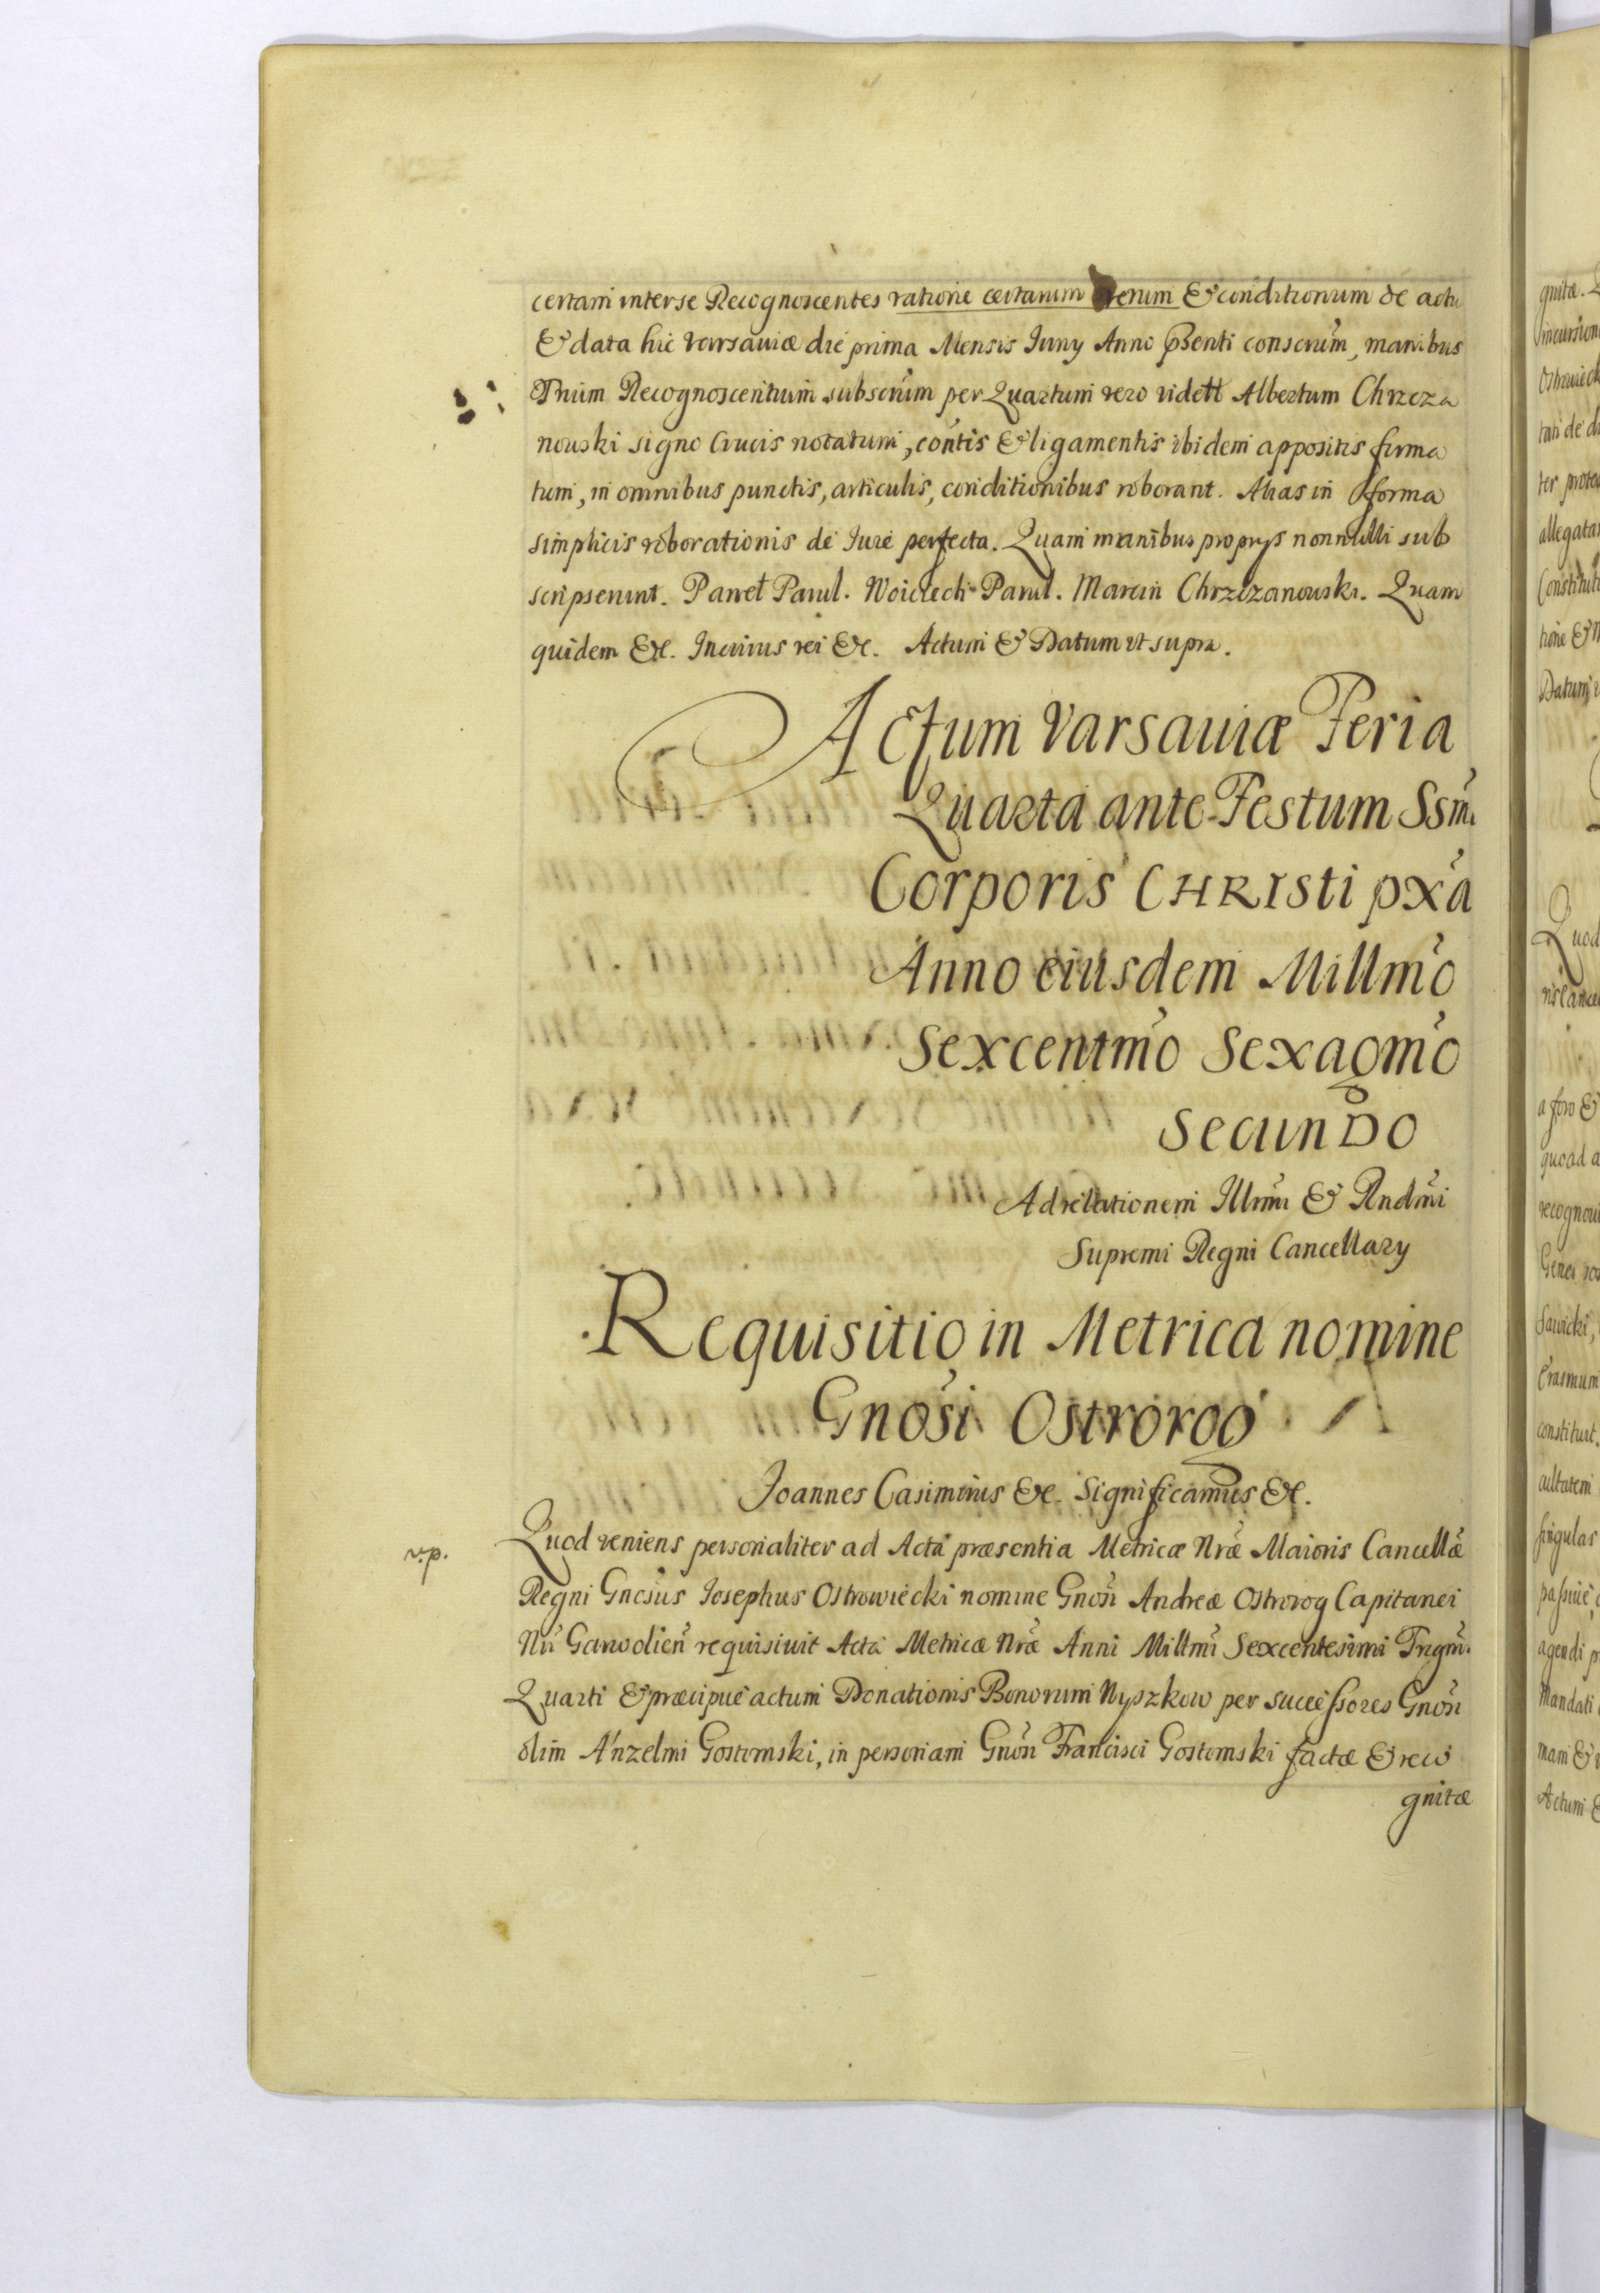 certam inter se Recognoscentes ratione certarum rerum & conditionum de actu
& data hic Varsaviæ die prima Mensis Iuny Anno p̃senti conscrũm, manibus
Trium Recognoscentium subscrũm per Quartum vero vidett Albertum Chrzcza
nowski signo Crucis notatum, cõntis & ligamentis ibidem appositis firma
tum, in omnibus punctis, articulis, conditionibus roborant. Alias in forma
simplicis roborationis de Iure perfecta. Quam manibus proprys nonnulli sub
scripserunt. Paweł Parul. Woiciech Parul. Marcin Chrzczanowski. Quam
quidem &c. Incuius rei &c. Actum & Datum ut supra.
Actum Varsaviæ Feria
Quarta ante Festum Ssm̃i
Corporis CHRISti px̃a
Anno eiusdem Millmõ
Sexcentmõ Sexagmõ
SecunDo
Ad relationem Illm̃i & Rndm̃i
Supremi Regni Cancellary
Requisitio in Metrica nomine
Gnõsi Ostrorog
Joannes Casimirus &c. Significamus &c.
v.p.
Quod veniens personaliter ad Acta præsentia Metricæ Nræ̃ Maioris Cancellæ̃
Regni Gnõsus Iosephus Ostrowiecki nomine Gnõsi Andreæ Ostrorog Capitanei
Nri Garwolieñ requisivit Acta Metricæ Nræ̃ Anni Millmĩ Sexcentesimi Trigm̃i
Quarti & præcipue actum Donationis Bonorum Nyszkow per successores Gnõsi
olim Anzelmi Gostomski, in personam Gnõsi Francisci Gostomski factæ & reco
gnitæ